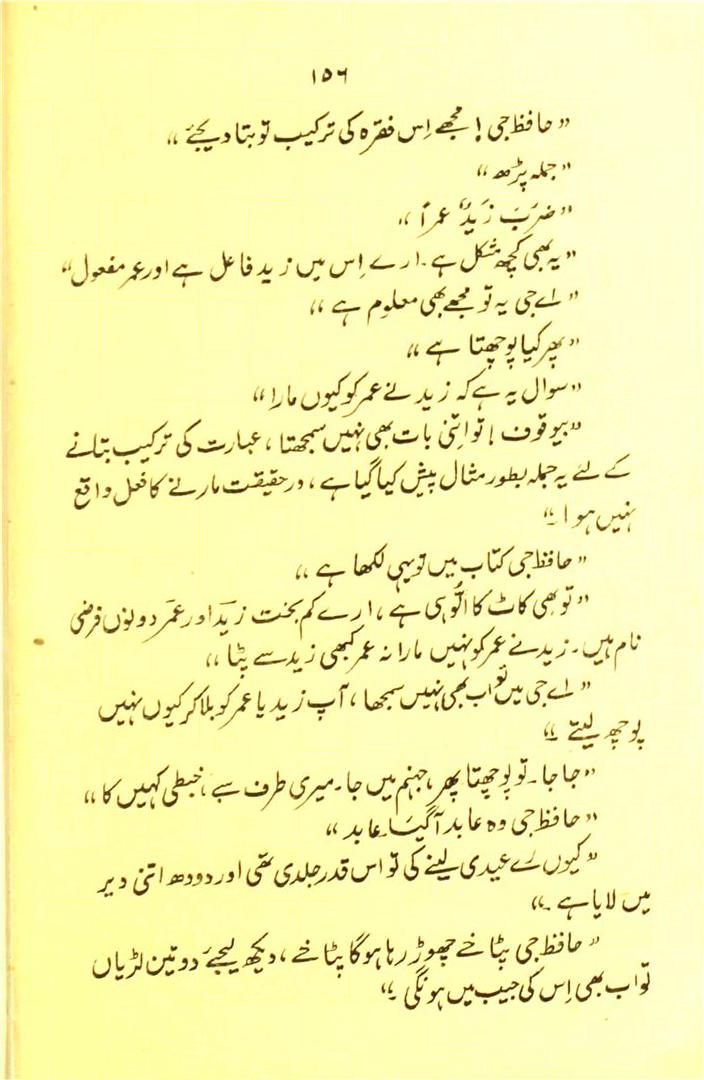 ۱۵۶
”حافظ جی! مجھے اِس فقرہ کی ترکیب تو بتا دیجئے“
”جملہ پڑھ“
”ضَرَبَ زَیدٌ عمراً“
”یہ بھی کچھ مشکل ہے۔ ارے اِس میں زید فاعل ہے اور عمر مفعول“
”اے جی یہ تو مجھے بھی معلوم ہے“
”پھر کیا پوچھتا ہے“
”سوال یہ ہے کہ زید نے عمر کو کیوں مارا“
”بیوقوف! تو اتنی بات بھی نہیں سمجھتا، عبارت کی ترکیب بتانے
کے لئے یہ جملہ بطور مثال پیش کیا گیا ہے، درحقیقت مارنے کا فعل واقع
نہیں ہوا۔“
”حافظ جی کتاب میں تو یہی لکھا ہے“
”تو بھی کاٹ کا اُلّو ہی ہے، ارے کم بخت زید اور عمر دونوں فرضی
نام ہیں۔ زید نے عمر کو نہیں مارا نہ عمر کبھی زید سے پٹا“
”اے جی میں تو اب بھی نہیں سمجھا، آپ زید یا عمر کو بلا کر کیوں نہیں
پوچھ لیتے۔“
”جا جا۔ تو پوچھتا پھر، جہنم میں جا۔ میری طرف سے، خبطی کہیں کا“
”حافظ جی وہ عابد آگیا۔ عابد“
”کیوں رے عیدی لینے کی تو اس قدر جلدی تھی اور دودھ اتنی دیر
میں لایا ہے۔“
”حافظ جی پٹاخے چھوڑ رہا ہوگا پٹاخے، دیکھ لیجئے دو تین لڑیاں
تو اب بھی اِس کی جیب میں ہونگی۔“